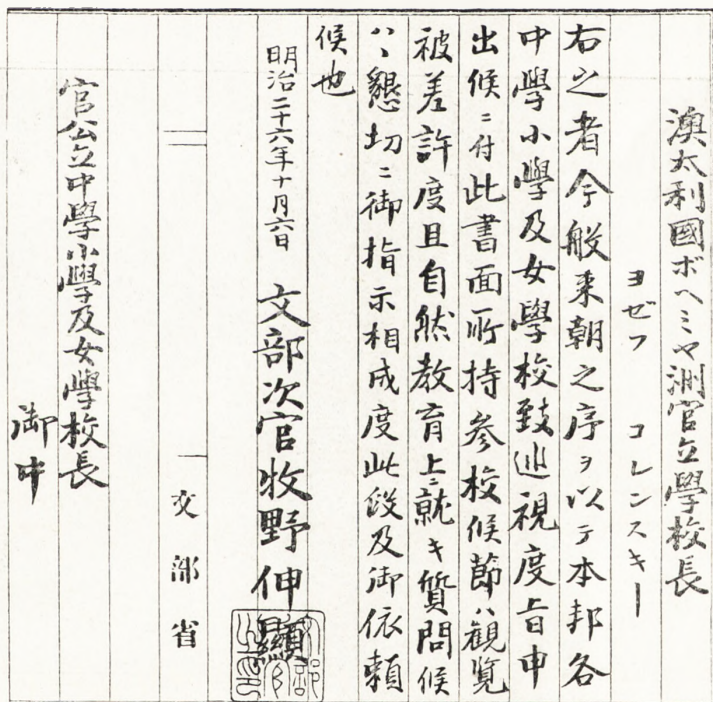 澳太利國ボヘミヤ洲官立學校長
ヨゼフ コレンスキー
右之者今般来朝之序ヲ以テ本邦各
中學小學及女學校致巡視度旨申
出候ニ付此書面所持参校候節ハ観覧
被差許度且自然教育上ニ就キ質問候
ハヽ懇切ニ御指示相成度此段及御依頼
候也
明治二十六年十月六日 文部次官牧野伸顯
文部省
官公立中學小學及女學校長
御中